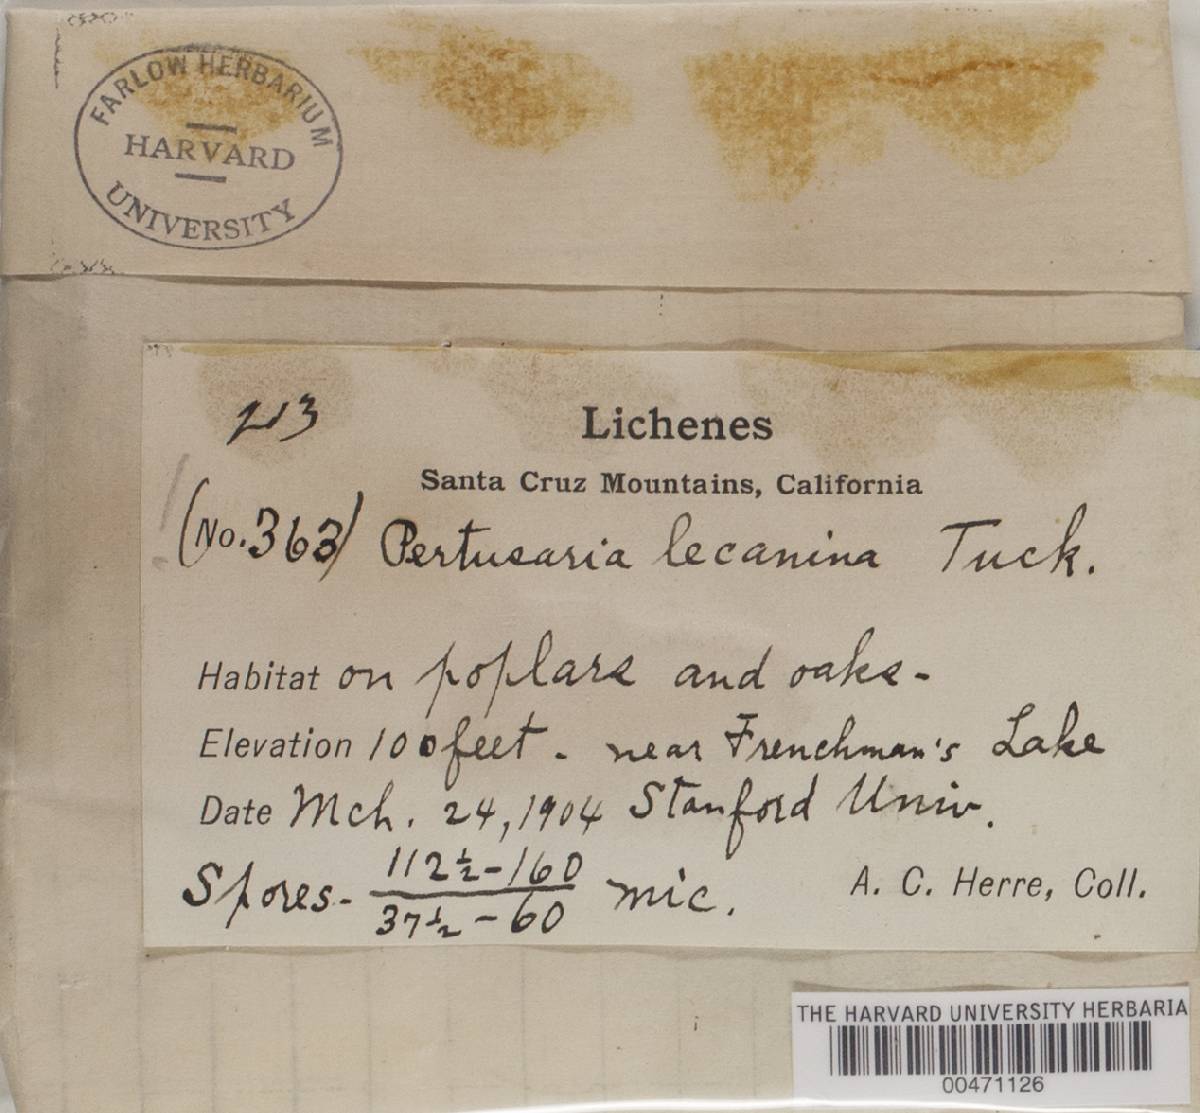 FARLOW HERBARIUM
HARVARD
UNIVERSITY
213
Lichenes
Santa Cruz Mountains, California
(No. 363) Pertusaria lecanina Tuck.
Habitat on poplars and oaks-
Elevation 100 feet - near Frenchman's Lake
Date Mch. 24, 1904 Stanford Univ.
Spores- 112½-160
37½-60 mic.
A. C. Herre, Coll.
THE HARVARD UNIVERSITY HERBARIA
00471126